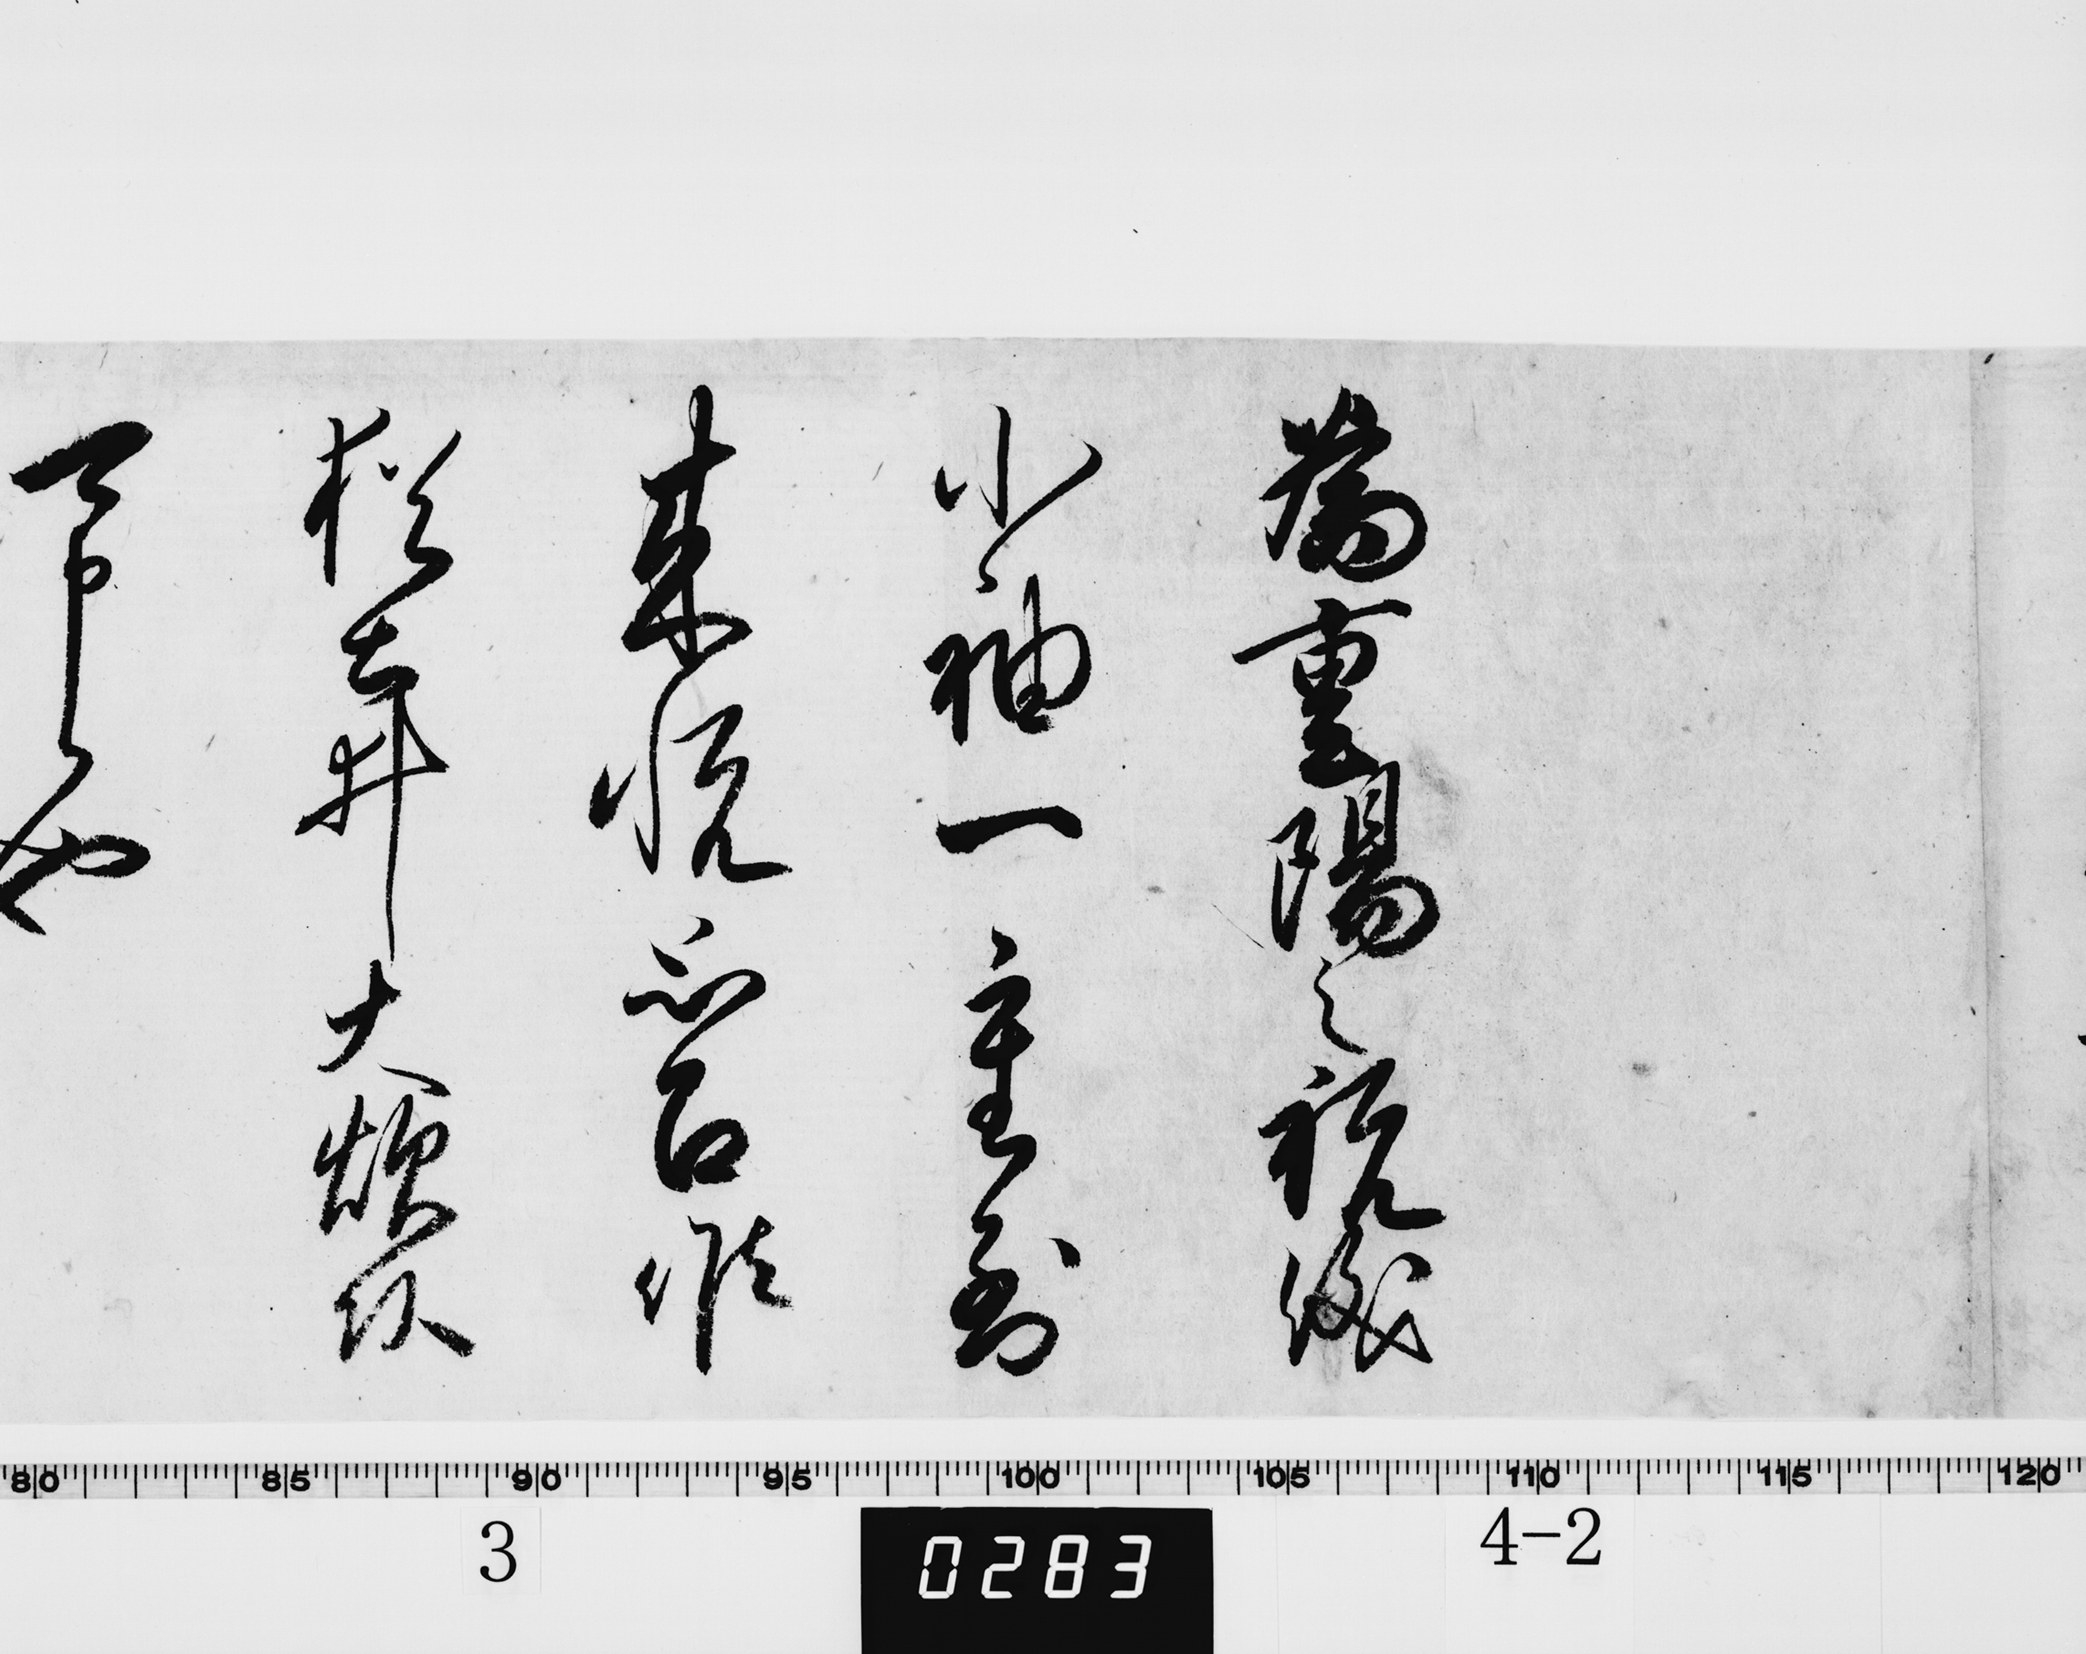 為重陽之祝儀
小袖一重到
来悦思召候
猶土井大炊頭
可申候也
80 85 90 95 100 105 110 115 120
3 0283 4-2